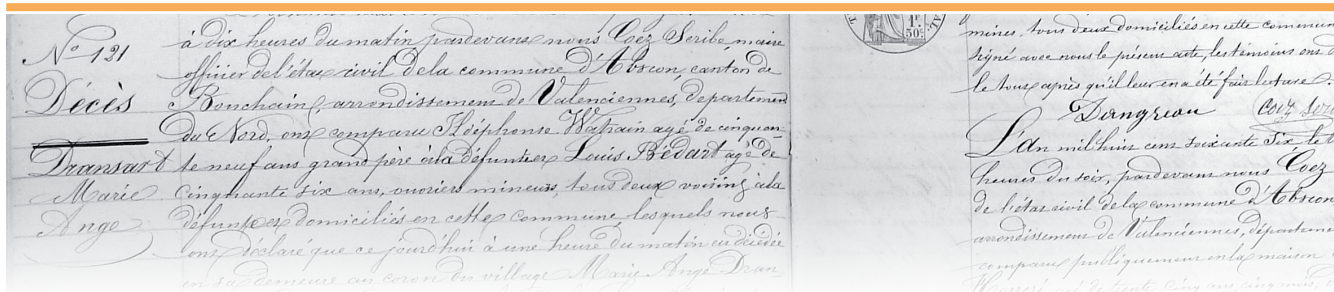 N° 121
Décès
Dransart
Marie
Ange
à dix heures du matin pardevant nous Coez Scribe maire
officier de l'état civil de la commune d'Abscon, canton de
Bouchain, arrondissement de Valenciennes, département
du Nord, ont comparu Ildephonse Watrain agé de cinquan
te neuf ans grand père à la défunte et Louis Bédart agé de
cinquante six ans, ouvriers mineurs, tous deux voisins à la
défunte et domiciliés en cette commune, lesquels nous
ont déclaré que ce jourd'hui à une heure du matin est décédée
en sa demeure au coron du village Marie Ange Dran
1F
50c
mines, tous deux domiciliés en cette commun
signé avec nous le présent acte, les témoins ont d
le tout après qu'il leur en a été fait lecture.
Dangreau Coez Scri
L'an mil huit cent soixante six le
heures du soir, pardevant nous Coez
de l'état civil de la commune d'Abscon
arrondissement de Valenciennes, départeme
comparu publiquement en la maison
agé de trente cinq ans cinq mois,